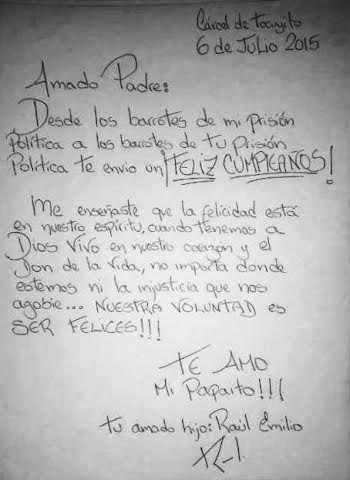 Cárcel de Tocuyito
6 de Julio 2015
Amado Padre:
Desde los barrotes de mi prisión
Política a los barrotes de tu Prisión
Política te envio un ¡FELIZ CUMPLEAÑOS!
Me enseñaste que la felicidad está
en nuestro espíritu, cuando tenemos a
Dios Vivo en nuestro corazon y el
Don de la vida, no importa donde
estemos ni la injusticia que nos
agobie... NUESTRA VOLUNTAD es
SER FELICES!!!
TE AMO
Mi Papaito!!!
tu amado hijo: Raúl Emilio